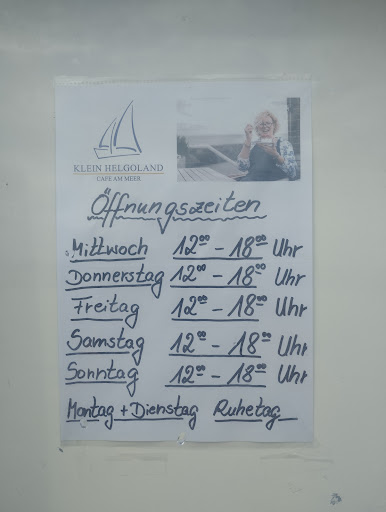 KLEIN HELGOLAND
CAFE AM MEER
Öffnungszeiten
Mittwoch 12⁰⁰ - 18⁰⁰ Uhr
Donnerstag 12⁰⁰ - 18⁰⁰ Uhr
Freitag 12⁰⁰ - 18⁰⁰ Uhr
Samstag 12⁰⁰ - 18⁰⁰ Uhr
Sonntag 12⁰⁰ - 18⁰⁰ Uhr
Montag + Dienstag Ruhetag